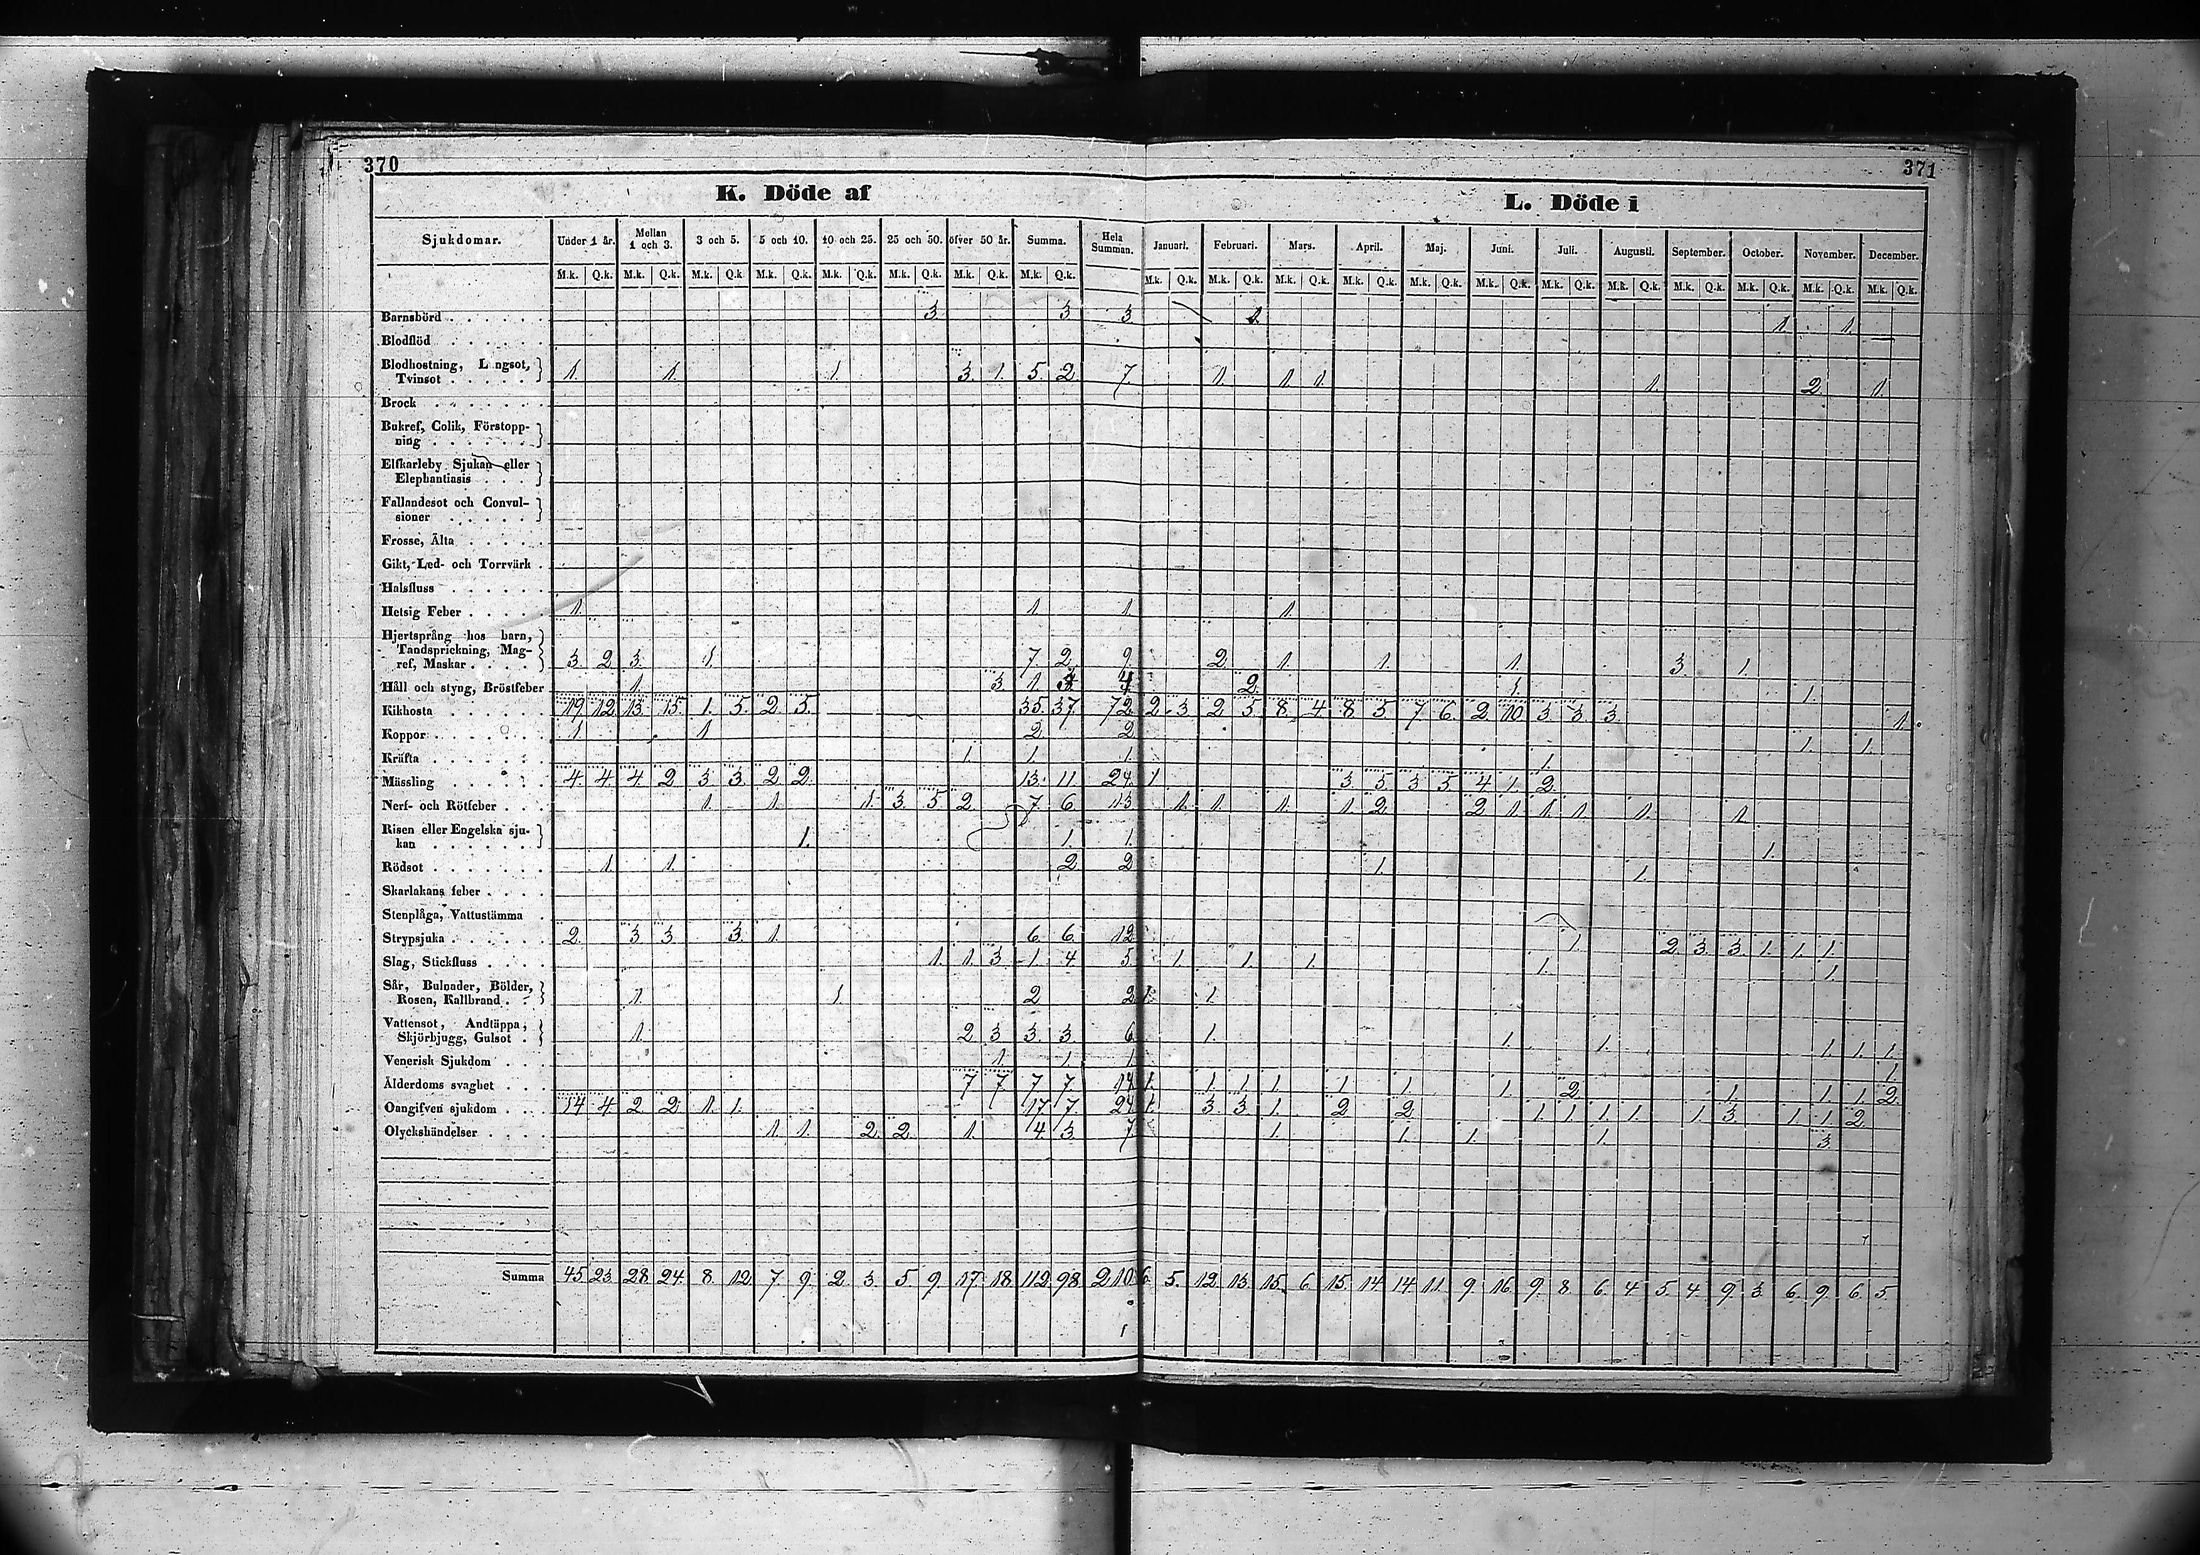 370
371
K. Döde af
L. Döde i
Sjukdomar. Under 1 år. Mellan 1 och 3. 3 och 5. 5 och 10. 10 och 25. 25 och 50. öfver 50 år. Summa. Hela Summan. Januari. Februari. Mars. April. Maj. Juni. Juli. Augusti. September. October. November. December.
M.k. Q.k. M.k. Q.k. M.k. Q.k M.k. Q.k. M.k. Q.k. M.k. Q.k. M.k. Q.k. M.k. Q.k. M.k. Q.k. M.k. Q.k. M.k. Q.k. M.k. Q.k. M.k. Q.k. M.k. Q.k. M.k. Q.k. M.k. Q.k. M.k. Q.k. M.k. Q.k. M.k. Q.k. M.k. Q.k.
Barnsbörd 3. 3 3. 1. 1. 1.
Blodflöd
Blodhostning, L ngsot,
Tvinsot 1. 1. 1. 3. 1. 5. 2 7. 1. 1. 1. 1. 2. 1.
Brock
Bukref, Colik, Förstopp-
ning
Elfkarleby Sjukan eller
Elephantiasis
Fallandesot och Convul-
sioner
Frosse, Älta
Gikt, Led- och Torrvärk
Halsfluss
Hetsig Feber 1. 1 1 1.
Hjertsprång hos barn,
Tandsprickning, Mag-
ref, Maskar 3. 2 3. 1. 7. 2. 9. 2. 1. 1. 1. 3. 1.
Håll och styng, Bröstfeber 1. 3. 1. 4 2. 1. 1.
Kikhosta 19. 12. 13. 15. 1. 5. 2. 5. 35 37 72. 2. 3. 2. 5. 8. 4. 8 5. 7 6. 2. 10. 3 3. 3. 1.
Koppor 1 1. 2 2 1. 1.
Kräfta 1. 1. 1. 1.
Mässling 4. 4. 4. 2 3. 3. 2. 2. 13. 11 24. 1 3 5. 3 5 4 1. 2.
Nerf- och Rötfeber 1. 1. 1. 3. 5 2 7. 6. 13 1. 1. 1. 1. 2. 2 1. 1. 1. 1. 1.
Risen eller Engelska sju-
kan 1. 1. 1. 1.
Rödsot 1. 1. 2 2 1. 1.
Skarlakans feber
Stenplåga, Vattustämma
Strypsjuka 2. 3. 3. 3. 1. 6. 6. 12. 1. 2. 3. 3. 1. 1. 1.
Slag, Stickfluss 1. 1. 3. 1. 4 5. 1. 1. 1. 1. 1.
Sår, Bulnader, Bölder,
Rosen, Kallbrand 1. 1. 2 2. 1. 1.
Vattensot, Andtäppa,
Skjörbjugg, Gulsot 1. 2 3 3. 3 6. 1. 1. 1. 1. 1. 1.
Venerisk Sjukdom 1. 1. 1. 1.
Ålderdoms svaghet 7 7 7 7 14. 1. 1. 1. 1. 1. 1. 1. 2. 1. 1. 1. 2.
Oangifven sjukdom 14 4. 2. 2 1. 1. 17 7. 24. 1. 3 3. 1. 2 2 1. 1. 1. 1. 1. 3. 1. 1. 2.
Olyckshändelser 1. 1. 2. 2. 1. 4. 3. 7 1. 1. 1. 1. 3.
Summa 45 23. 28. 24. 8. 12 7. 9. 2 3. 5. 9. 17. 18 112. 98 210. 6. 5. 12. 13. 15. 6. 15. 14 14 11. 9. 16. 9. 8. 6. 4 5. 4. 9. 3. 6. 9. 6. 5.